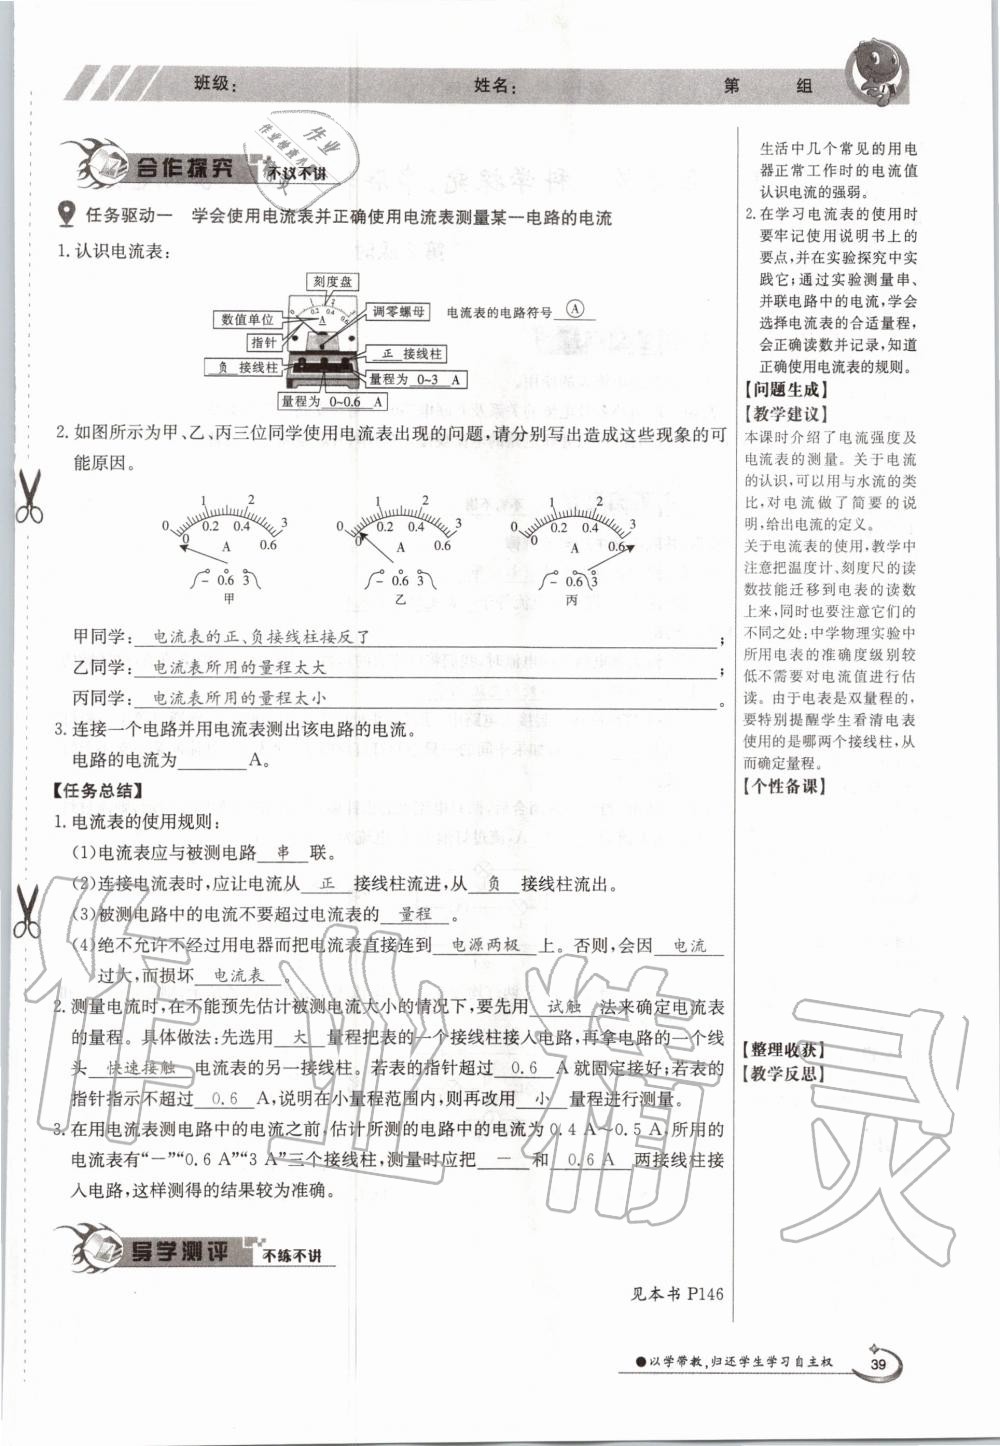 班级:
姓名:
第 组
合作探究 不议不讲
任务驱动一 学会使用电流表并正确使用电流表测量某一电路的电流
1. 认识电流表:
刻度盘
数值单位
指针
调零螺母
电流表的电路符号 A
负 接线柱
正 接线柱
量程为 0~3 A
量程为 0~0.6 A
2. 如图所示为甲、乙、丙三位同学使用电流表出现的问题,请分别写出造成这些现象的可
能原因。
0 1 2 3
0 0.2 0.4 0.6
A
- 0.6 3
甲
0 1 2 3
0 0.2 0.4 0.6
A
- 0.6 3
乙
0 1 2 3
0 0.2 0.4 0.6
A
- 0.6 3
丙
甲同学: 电流表的正、负接线柱接反了 ;
乙同学: 电流表所用的量程太大 ;
丙同学: 电流表所用的量程太小 。
3. 连接一个电路并用电流表测出该电路的电流。
电路的电流为______A。
【任务总结】
1. 电流表的使用规则:
(1)电流表应与被测电路 串 联。
(2)连接电流表时,应让电流从 正 接线柱流进,从 负 接线柱流出。
(3)被测电路中的电流不要超过电流表的 量程 。
(4)绝不允许不经过用电器而把电流表直接连到 电源两极 上。否则,会因 电流
过大,而损坏 电流表 。
2. 测量电流时,在不能预先估计被测电流大小的情况下,要先用 试触 法来确定电流表
的量程。具体做法:先选用 大 量程把表的一个接线柱接入电路,再拿电路的一个线
头 快速接触 电流表的另一接线柱。若表的指针超过 0.6 A就固定接好;若表的
指针指示不超过 0.6 A,说明在小量程范围内,则再改用 小 量程进行测量。
3. 在用电流表测电路中的电流之前,估计所测的电路中的电流为0.4 A~0.5 A,所用的
电流表有“-”“0.6 A”“3 A”三个接线柱,测量时应把 - 和 0.6 A 两接线柱接
入电路,这样测得的结果较为准确。
导学测评 不练不讲
见本书 P146
生活中几个常见的用电
器正常工作时的电流值
认识电流的强弱。
2. 在学习电流表的使用时
要牢记使用说明书上的
要点,并在实验探究中实
践它;通过实验测量串、
并联电路中的电流,学会
选择电流表的合适量程,
会正确读数并记录,知道
正确使用电流表的规则。
【问题生成】
【教学建议】
本课时介绍了电流强度及
电流表的测量。关于电流
的认识,可以用与水流的类
比,对电流做了简要的说
明,给出电流的定义。
关于电流表的使用,教学中
注意把温度计、刻度尺的读
数技能迁移到电表的读数
上来,同时也要注意它们的
不同之处:中学物理实验中
所用电表的准确度级别较
低不需要对电流值进行估
读。由于电表是双量程的,
要特别提醒学生看清电表
使用的是哪两个接线柱,从
而确定量程。
【个性备课】
【整理收获】
【教学反思】
●以学带教,归还学生学习自主权 39
作业精灵